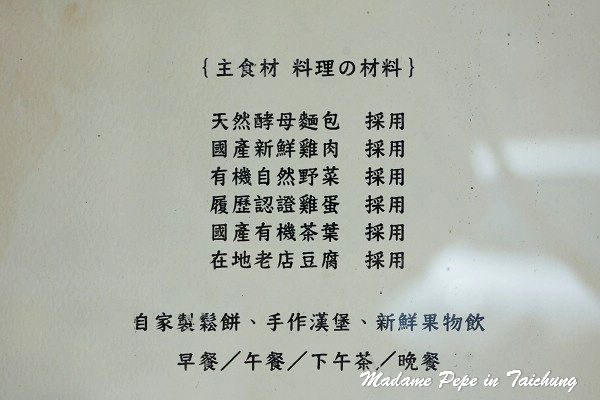 {主食材 料理の材料}
天然酵母麵包 採用
國產新鮮雞肉 採用
有機自然野菜 採用
履歷認證雞蛋 採用
國產有機茶葉 採用
在地老店豆腐 採用
自家製鬆餅、手作漢堡、新鮮果物飲
早餐／午餐／下午茶／晚餐
Madame Pepe in Taichung